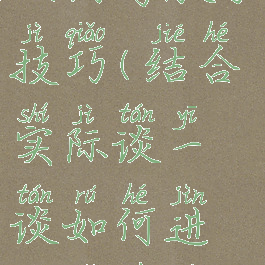 jì qiǎo jié hé
技巧(结合
shí jì tán yī
实际谈一
tán rú hé jìn
谈如何进